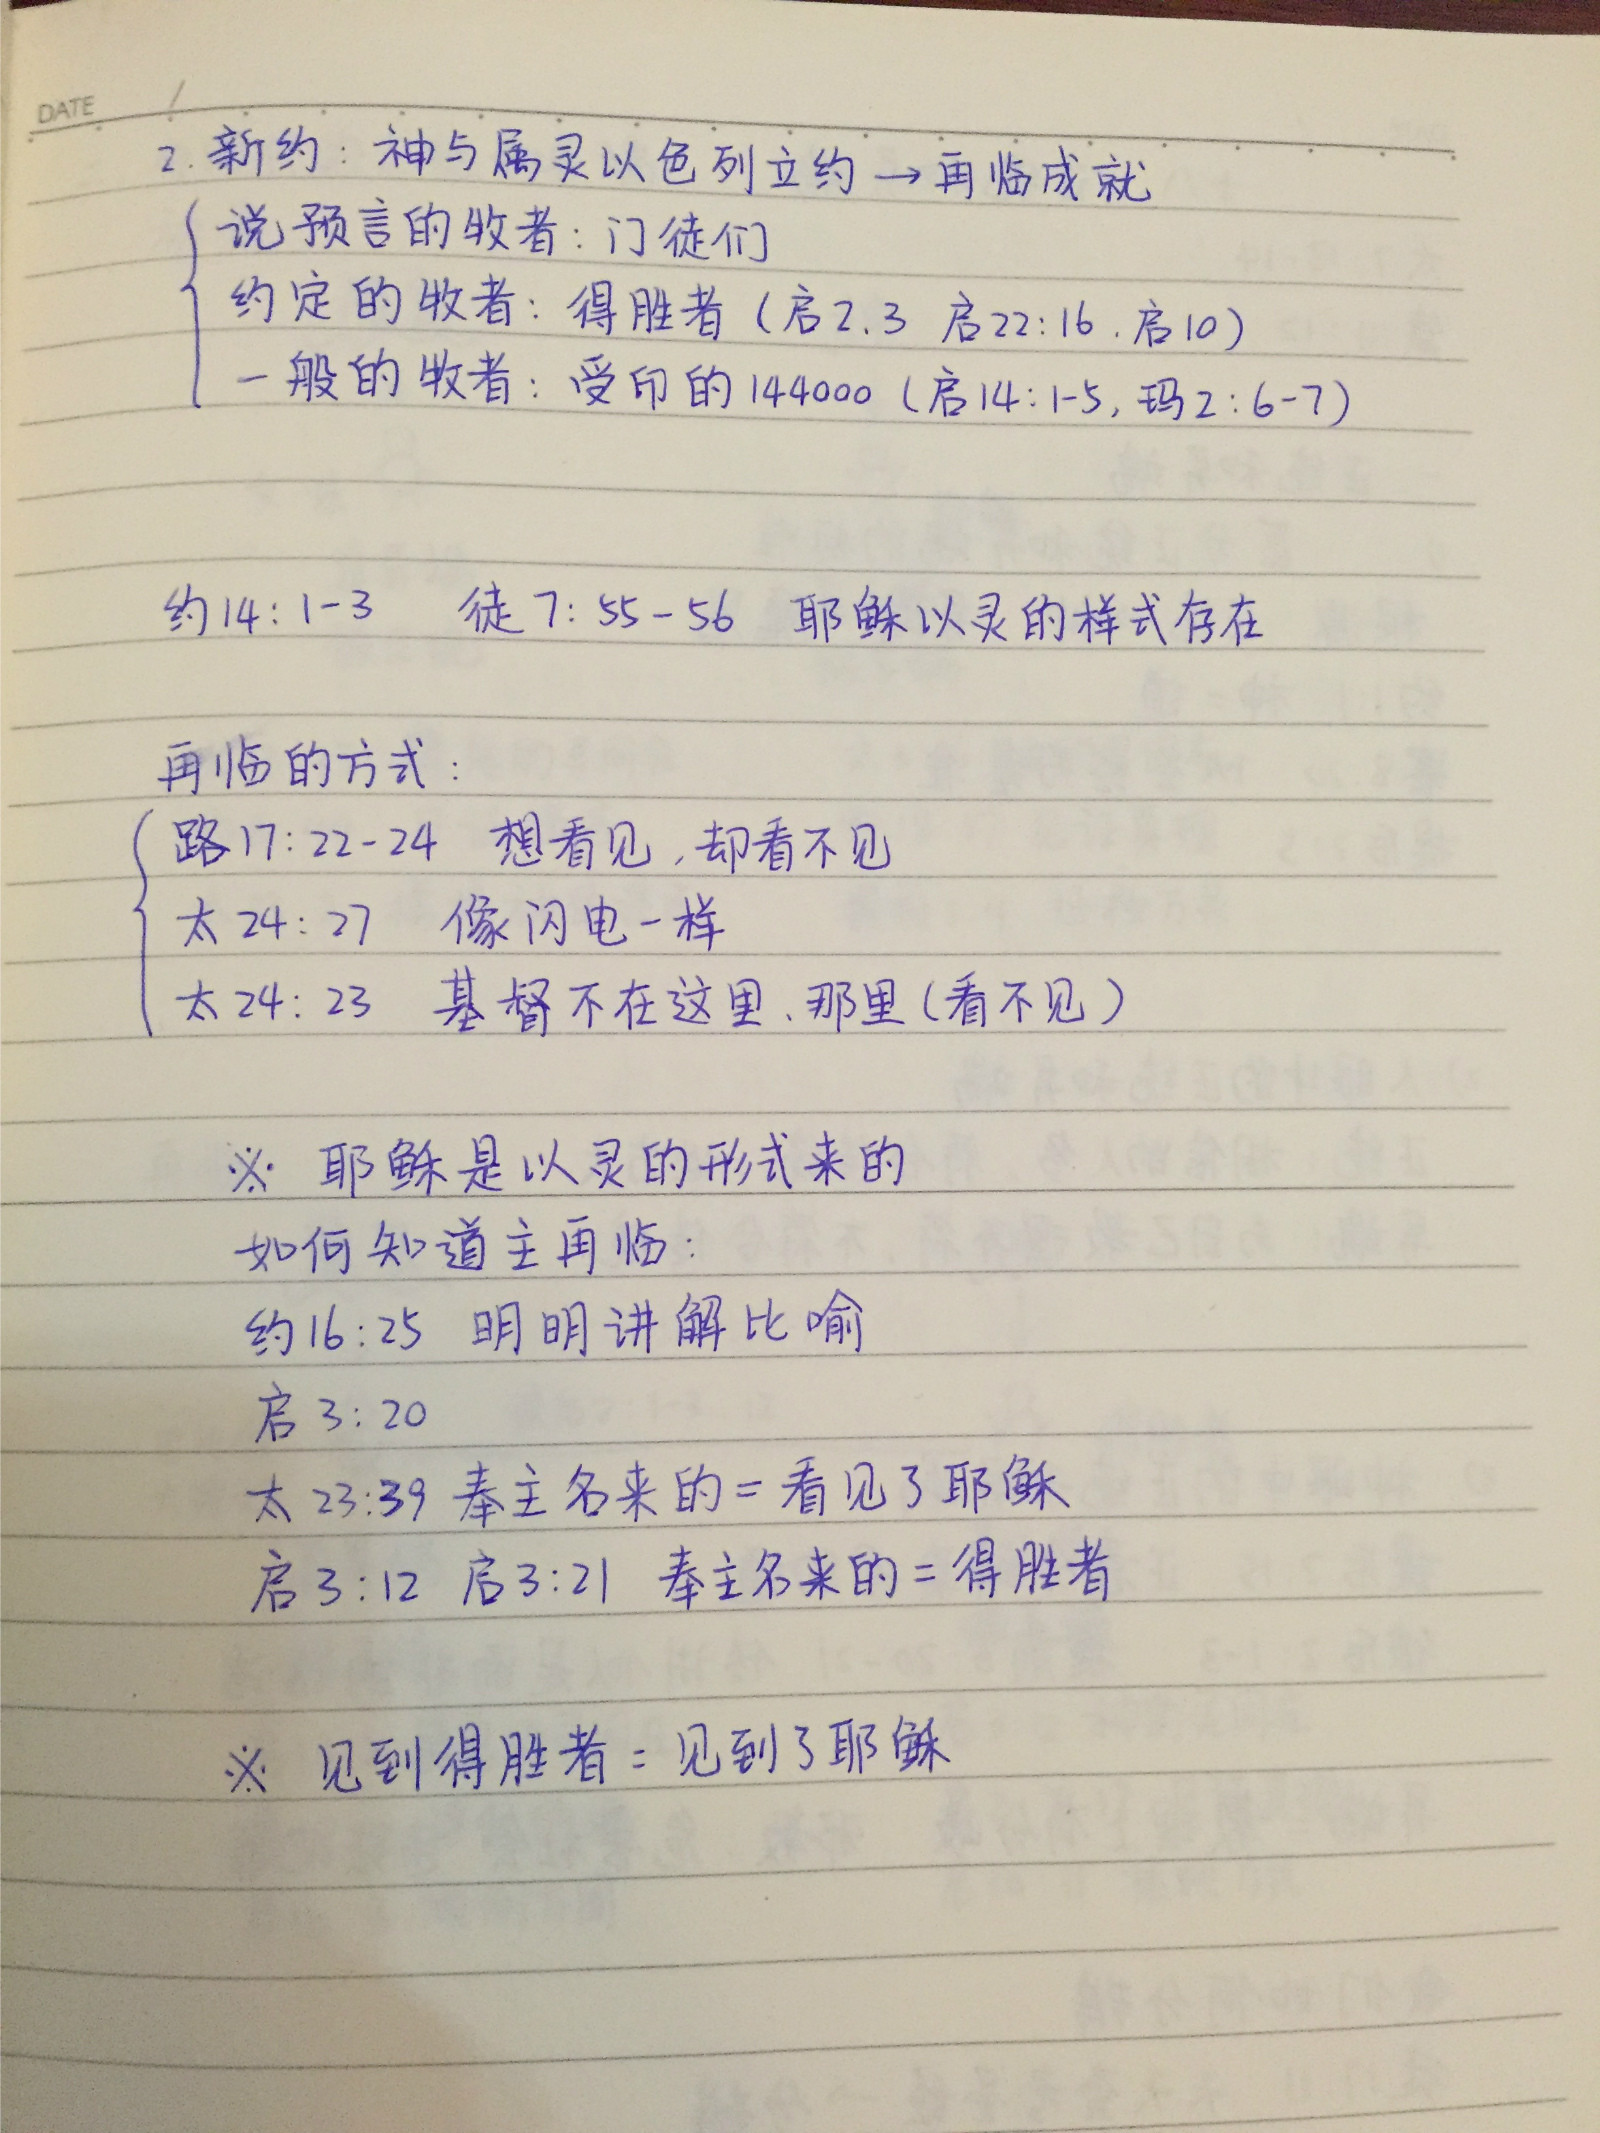 DATE /
2. 新约: 神与属灵以色列立约→再临成就
说预言的牧者: 门徒们
约定的牧者: 得胜者 (启2.3 启22:16. 启10)
一般的牧者: 受印的144000 (启14:1-5, 玛2:6-7)
约14:1-3 徒7:55-56 耶稣以灵的样式存在
再临的方式:
路17:22-24 想看见, 却看不见
太24:27 像闪电一样
太24:23 基督不在这里、那里(看不见)
※ 耶稣是以灵的形式来的
如何知道主再临:
约16:25 明明讲解比喻
启3:20
太23:39 奉主名来的=看见了耶稣
启3:12 启3:21 奉主名来的=得胜者
※ 见到得胜者=见到了耶稣